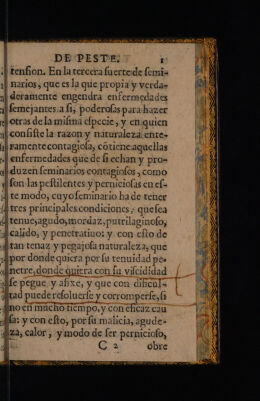 DE PESTE. 1
tension. En la tercera suerte de semi-
narios, que es la que propia y verda-
deramente engendra enfermedades
semejantes a si, poderosas para hazer
otras de la misma especie, y en quien
consiste la razon y naturaleza ente-
ramente contagiosa, cõtiene aquellas
enfermedades que de si echan y pro-
duzen seminarios contagiosos, como
son las pestilentes y perniciosas en es-
te modo, cuyo seminario ha de tener
tres principales condiciones, que sea
tenue, agudo, mordaz, putrilaginoso,
calido, y penetratiuo: y con esto de
tan tenaz y pegajosa naturaleza, que
por donde quiera por su tenuidad pe-
netre, donde quiera con su viscididad
se pegue y afixe, y que con dificul-
tad puede resoluerse y corromperse, si
no en mucho tiempo, y con eficaz cau
sa: y con esto, por su malicia, agude-
za, calor, y modo de ser pernicioso,
C 2 obre